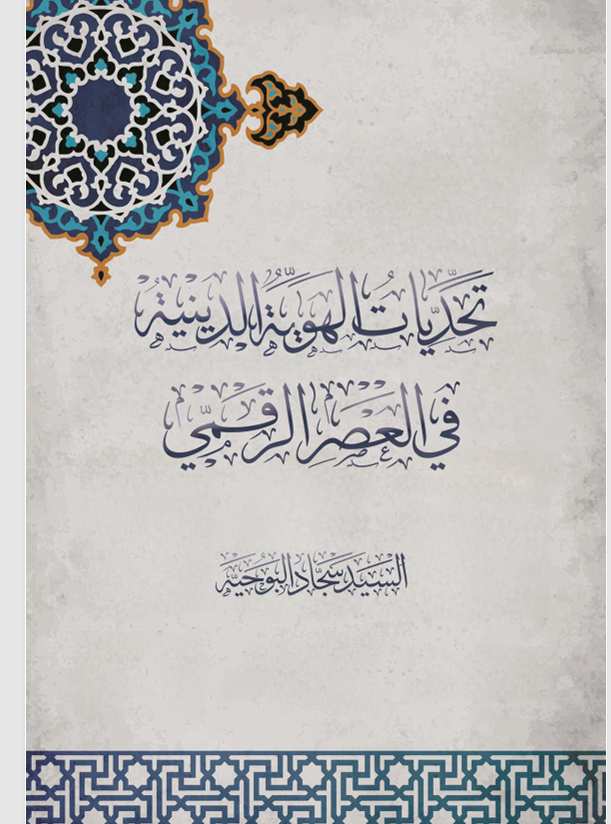 تحديات الهوية الدينية
في العصر الرقمي
السيد سجاد البوحية